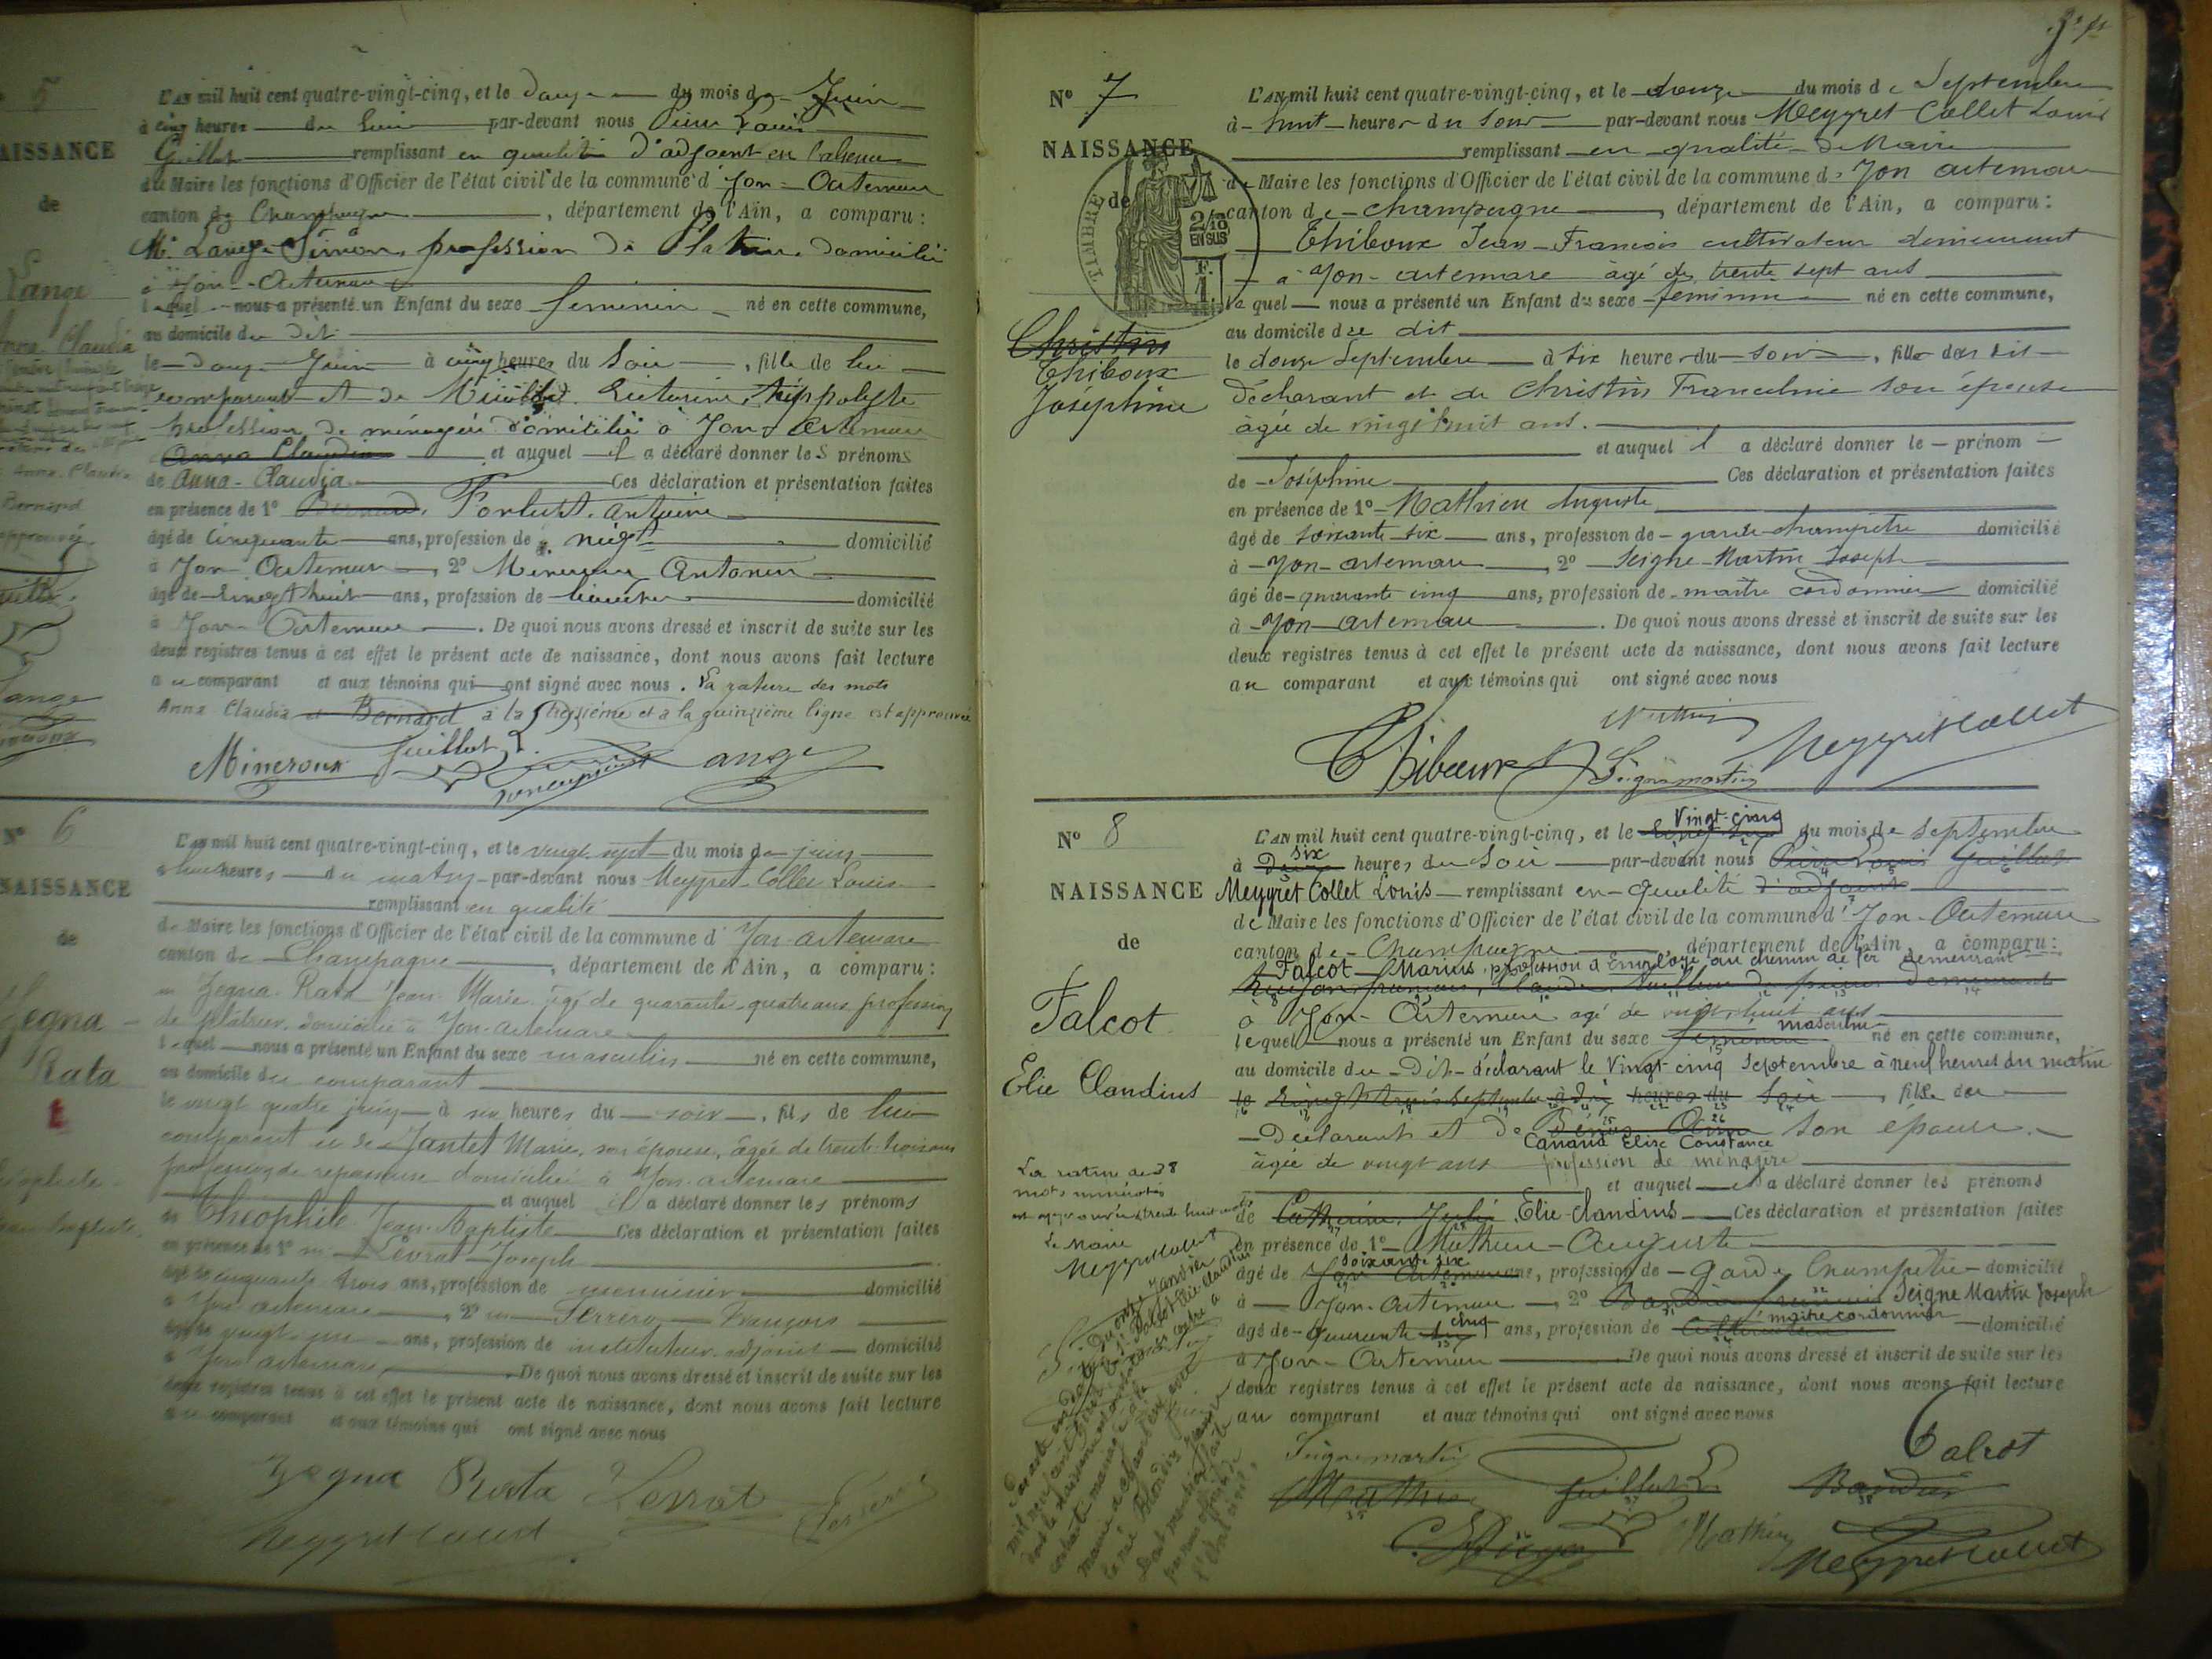 5
NAISSANCE
de
Lange
Anna Claudia
L'AN mil huit cent quatre-vingt-cinq, et le douze du mois de Juin
à cinq heures du soir par-devant nous Pierre Louis
Guillot remplissant en qualité d'adjoint en l'absence
du Maire les fonctions d'Officier de l'état civil de la commune d'Yon-Artemare
canton de Champagne, département de l'Ain, a comparu :
Mr Lange Simon, profession de Platrier domicilié
à Yon-Artemare
lequel nous a présenté un Enfant du sexe feminin né en cette commune,
au domicile du dit
le douze Juin à cinq heures du soir, fille de lui
comparant et de Victorine, Hippolyte
profession de ménagère domicilié à Yon-Artemare
Anna Claudia et auquel il a déclaré donner les prénoms
de Anna-Claudia Ces déclaration et présentation faites
en présence de 1° Bernard Antoine
âgé de cinquante ans, profession de négt domicilié
à Yon Artemare, 2° Mineroux Antonin
âgé de vingt huit ans, profession de domicilié
à Yon-Artemare. De quoi nous avons dressé et inscrit de suite sur les
deux registres tenus à cet effet le présent acte de naissance, dont nous avons fait lecture
au comparant et aux témoins qui ont signé avec nous. La rature des mots
Anna Claudia et Bernard à la treizième et à la quinzième ligne est approuvée
Mineroux Guillot L. Lange
N° 6
NAISSANCE
de
Zegna
Rata
t
Théophile
Jean Baptiste
L'AN mil huit cent quatre-vingt-cinq, et le vingt sept du mois de juin
heures du matin par-devant nous Meygret-Collet Louis
remplissant en qualité
de Maire les fonctions d'Officier de l'état civil de la commune d'Yon-artemare
canton de Champagne, département de l'Ain, a comparu :
Zegna Rata Jean Marie âgé de quarante-quatre ans, profession
de plâtrier, domicilié à Yon-artemare
lequel nous a présenté un Enfant du sexe masculin né en cette commune,
au domicile du comparant
le vingt quatre juin à six heures du soir, fils de lui
comparant et de Jantet Marie, son épouse, âgée de trente-trois ans
profession de repasseuse domiciliée à Yon-artemare
et auquel il a déclaré donner les prénoms
de Théophile Jean-Baptiste Ces déclaration et présentation faites
en présence de 1° Levrat Joseph
âgé de cinquante trois ans, profession de menuisier domicilié
à Yon artemare, 2° Ferrero François
âgé de vingt-un ans, profession de instituteur-adjoint domicilié
à Yon artemare. De quoi nous avons dressé et inscrit de suite sur les
deux registres tenus à cet effet le présent acte de naissance, dont nous avons fait lecture
au comparant et aux témoins qui ont signé avec nous
Zegna Rata Levrat Ferrero
Meygret Collet
N° 7
NAISSANCE
de
TIMBRE
2/10
EN SUS
F.
1
Christin
Thiboux
Joséphine
L'AN mil huit cent quatre-vingt-cinq, et le douze du mois de Septembre
à huit heures du soir par-devant nous Meygret Collet Louis
remplissant en qualité de Maire
du Maire les fonctions d'Officier de l'état civil de la commune d'Yon artemare
canton de champagne, département de l'Ain, a comparu :
Thiboux Jean-François cultivateur demeurant
à Yon-artemare âgé de trente sept ans
Lequel nous a présenté un Enfant du sexe feminin né en cette commune,
au domicile du dit
le douze Septembre à six heures du soir, fille du dit
déclarant et de Christin Franceline son épouse
âgée de vingt huit ans.
et auquel il a déclaré donner le prénom
de Joséphine Ces déclaration et présentation faites
en présence de 1° Mathieu Auguste
âgé de soixante-six ans, profession de garde-champêtre domicilié
à Yon-artemare, 2° Seigne-Martin Joseph
âgé de quarante cinq ans, profession de maître cordonnier domicilié
à Yon-artemare. De quoi nous avons dressé et inscrit de suite sur les
deux registres tenus à cet effet le présent acte de naissance, dont nous avons fait lecture
au comparant et aux témoins qui ont signé avec nous
Mathieu
Thiboux Seignemartin Meygret Collet
N° 8
NAISSANCE
de
Falcot
Elie Claudius
Vingt-cinq
L'AN mil huit cent quatre-vingt-cinq, et le du mois de septembre
six
à heures du soir par-devant nous Pierre Louis Guillot
Meygret Collet Louis remplissant en qualité d'adjoint
de Maire les fonctions d'Officier de l'état civil de la commune d'Yon-Artemare
canton de Champagne, département de l'Ain, a comparu :
Falcot Marius profession d'Employé au chemin de fer demeurant
à Yon-Artemare agé de vingt huit ans
masculin
lequel nous a présenté un Enfant du sexe feminin né en cette commune,
au domicile du Dit déclarant le Vingt cinq Septembre à neuf heures du matin
le vingt trois septembre à dix heures du soir, fils du
Déclarant et de son épouse
Canand Elise Constance
âgée de vingt ans profession de ménagère
et auquel il a déclaré donner les prénoms
de Catherine Julie Elie Claudius Ces déclaration et présentation faites
en présence de 1° Mathieu-Auguste
soixante six
âgé de Yon Artemare ans, profession de Garde Champêtre domicilié
à Yon-Artemare, 2° Seigne Martin Joseph
cinq maître cordonnier
âgé de quarante ans, profession de cultivateur domicilié
à Yon-Artemare De quoi nous avons dressé et inscrit de suite sur les
deux registres tenus à cet effet le présent acte de naissance, dont nous avons fait lecture
au comparant et aux témoins qui ont signé avec nous
La rature de 38
mots numérotés
est approuvée trente huit mots
Le Maire
Meygret Collet
Falcot
Seignemartin Guillot L. Baudin
Mathieu
Mathieu Meygret Collet